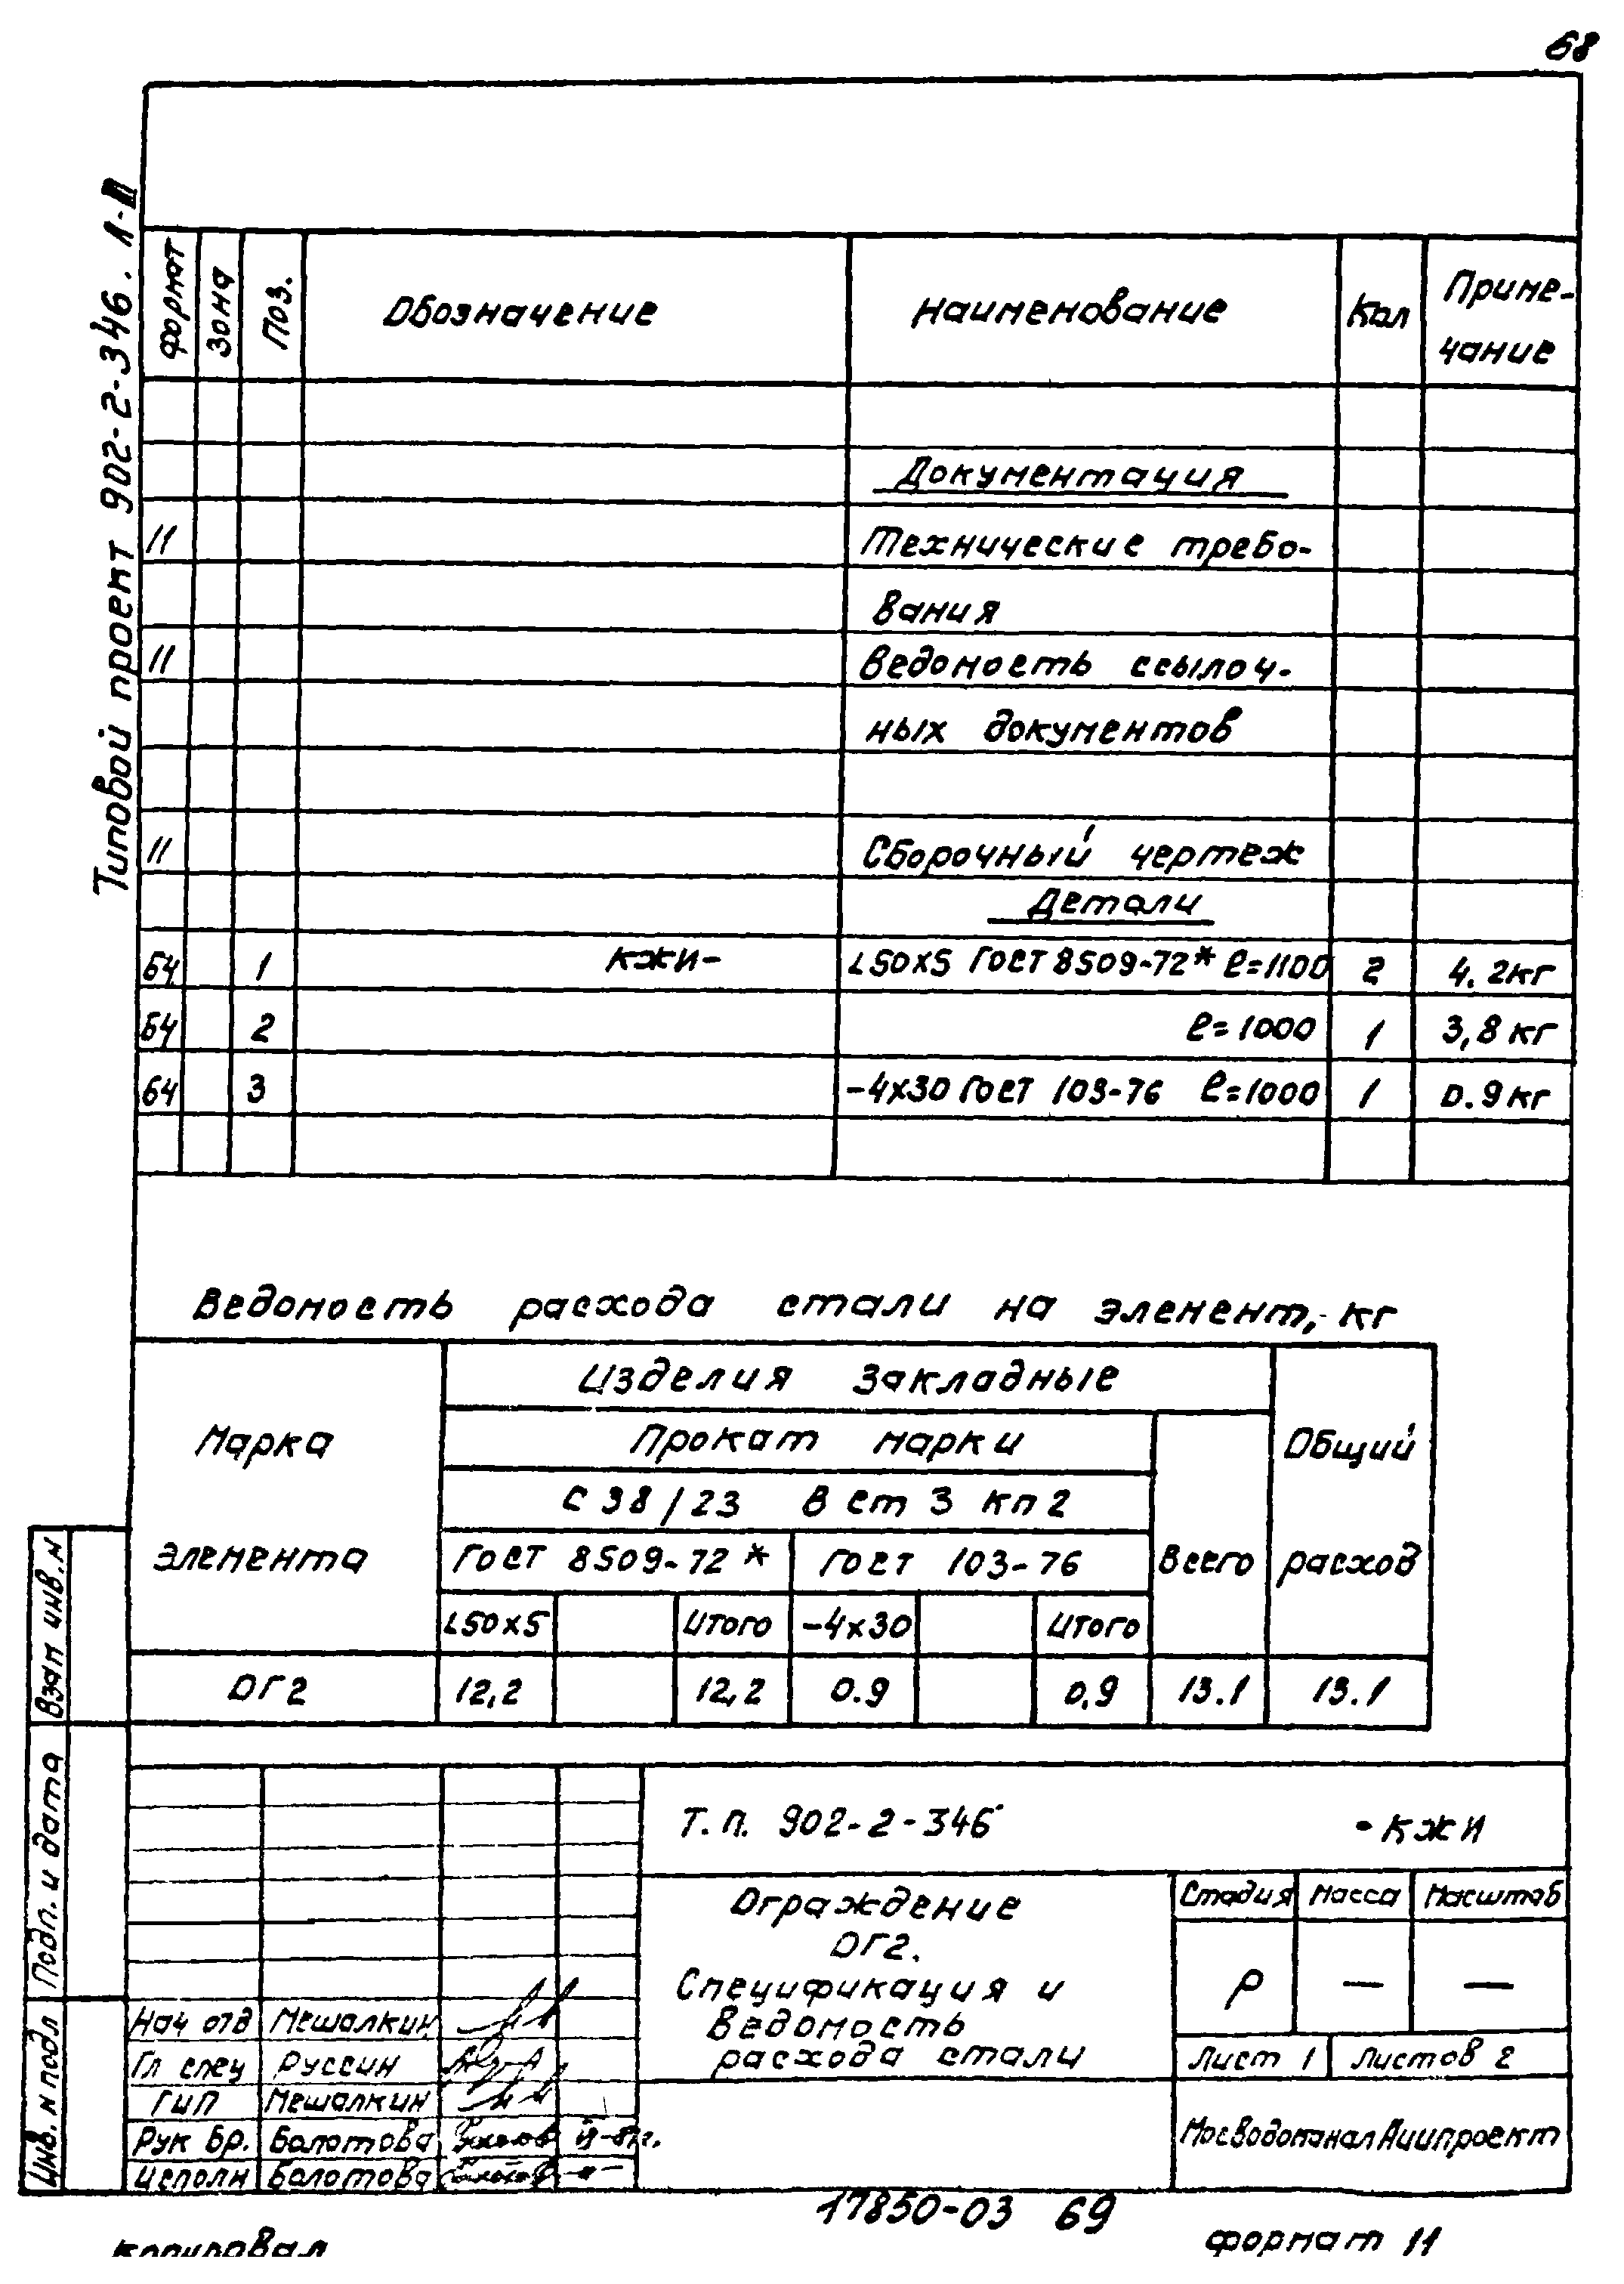 68
Типовой проект 902-2-346. Л-III
Формат Зона Поз. Обозначение Наименование Кол Приме-
чание
Документация
11 Технические требо-
вания
11 Ведомость ссылоч-
ных документов
11 Сборочный чертеж
Детали
БЧ 1 КЖИ- L50х5 ГОСТ 8509-72* ℓ=1100 2 4.2кг
БЧ 2 ℓ=1000 1 3,8 кг
БЧ 3 -4х30 ГОСТ 103-76 ℓ=1000 1 0.9 кг
Ведомость расхода стали на элемент, кг
Изделия закладные
Марка Прокат марки Общий
С 38/23 В ст 3 кп 2
элемента ГОСТ 8509-72* ГОСТ 103-76 Всего расход
L50х5 Итого -4х30 Итого
ОГ2 12,2 12,2 0.9 0,9 13.1 13.1
Взам инв. н
Подп. и дата
Инв. н подл
Т. П. 902-2-346 -КЖИ
Ограждение
ОГ2.
Спецификация и
Ведомость
расхода стали
Стадия Масса Масштаб
Р — —
Лист 1 Листов 2
МосводоканалНИИпроект
Нач отд Мешалкин
Гл спец Руссин
ГиП Мешалкин
Рук бр. Болотова
Исполн Болотова
17850-03 69
Копировал
формат 11